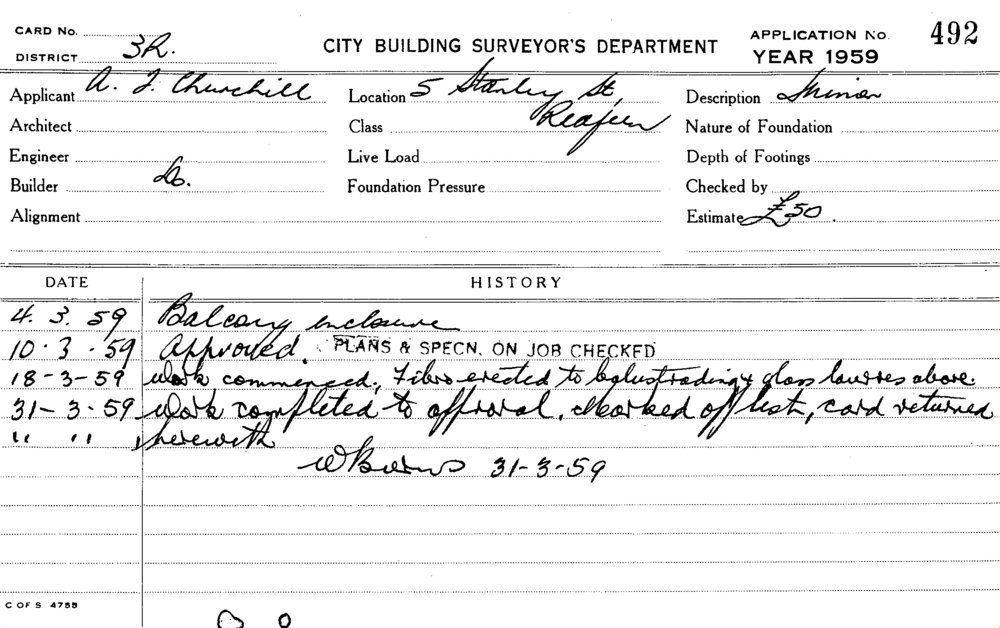 CARD No.
DISTRICT 3R.
CITY BUILDING SURVEYOR'S DEPARTMENT
APPLICATION No. 492
YEAR 1959
Applicant A. J. Churchill
Location 5 Stanley St,
Redfern
Description Minor
Architect
Class
Nature of Foundation
Engineer
Live Load
Depth of Footings
Builder Do.
Foundation Pressure
Checked by
Alignment
Estimate £50.
DATE HISTORY
4. 3. 59 Balcony enclosure
10. 3. 59 Approved. PLANS & SPECN. ON JOB CHECKED
18-3-59 Work commenced, Fibro erected to balustrading & glass louvres above.
31-3-59 Work completed to approval. Marked off list, card returned
" " herewith
W Burns 31-3-59
C OF S 4755